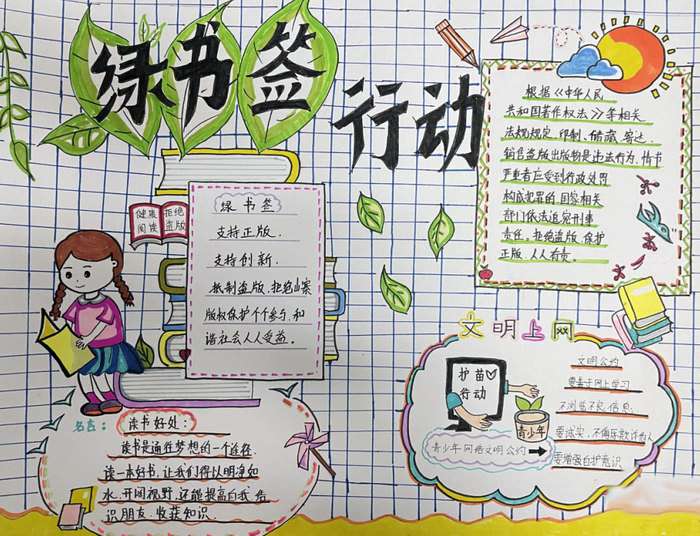 绿书签
行动
健康
阅读
拒绝
盗版
绿书签
支持正版.
支持创新.
抵制盗版.拒绝山寨
版权保护个个参与.和
谐社会人人受益.
根据《中华人民
共和国著作权法》等相关
法规规定.印制、储藏、寄递
销售盗版出版物是违法行为.情节
严重者应受到行政处罚
构成犯罪的.国家相关
部门依法追究刑事
责任.拒绝盗版.保护
正版.人人有责.
名言:
读书好处:
读书是通往梦想的一个途径
读一本好书.让我们得以明净如
水.开阔视野.还能提高自我.结
识朋友.收获知识.
文明上网
护苗
行动
青少年
青少年网络文明公约
文明公约
要善于网上学习
不浏览不良信息.
要诚实.不侮辱欺诈他人
要增强自护意识